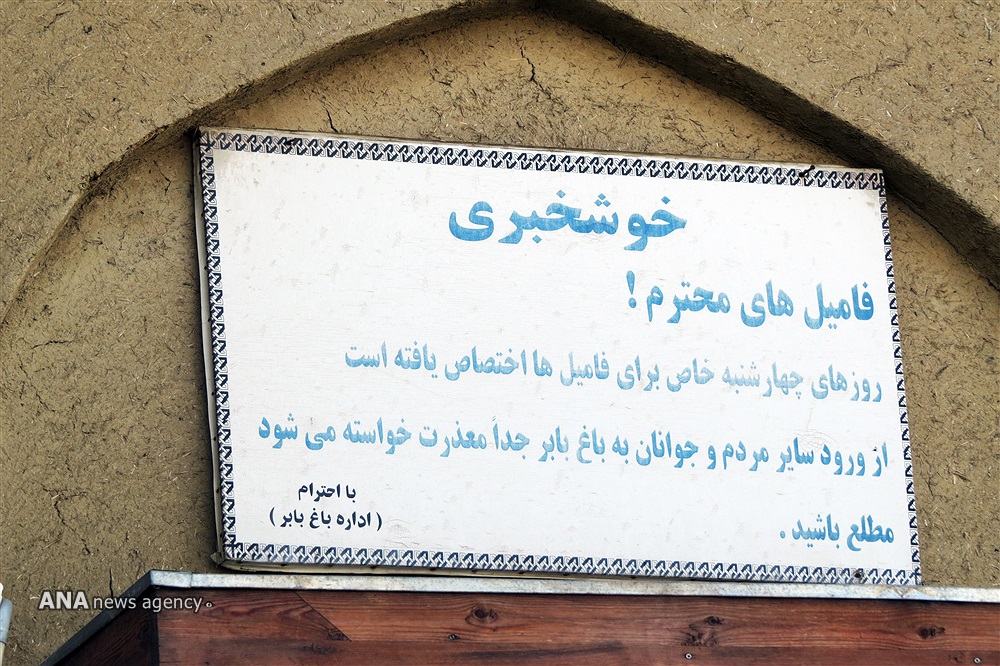 خوشخبری
فامیل های محترم !
روزهای چهارشنبه خاص برای فامیل ها اختصاص یافته است
از ورود سایر مردم و جوانان به باغ بابر جداً معذرت خواسته می شود
مطلع باشید .
با احترام
( اداره باغ بابر )
ANA news agency